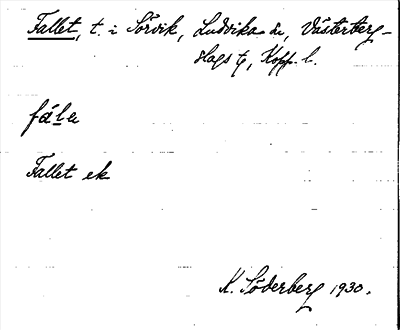 Fallet, t. i Sörvik, Ludvika sn, Västerberg-
slags tg, Kopp. l.
fála
Fallet ek
K. Söderberg 1930.